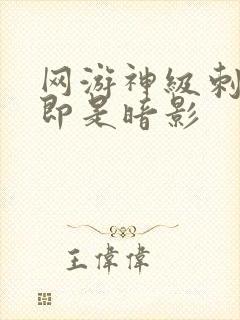 网游神级刺
即是暗影
王偉偉